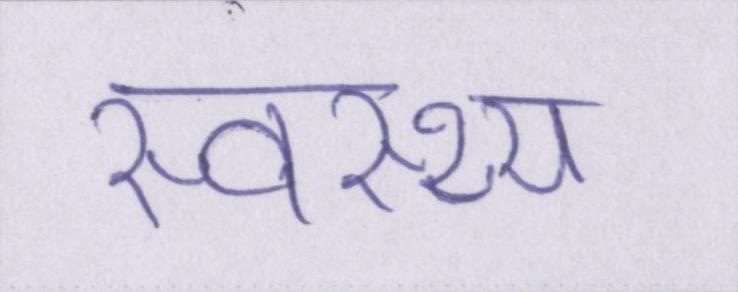 स्वस्थ्य